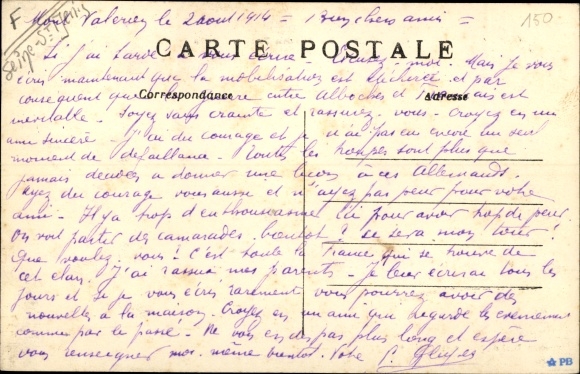 F
Seine St Denis
150
Mont Valerien le 2 aout 1914 = Mes chers amis =
CARTE POSTALE
Si j'ai tardé à vous écrire - Excusez-moi. Mais je vous
écris maintenant que la mobilisation est et par
Correspondance
Adresse
conséquent que la guerre entre Alboches et Français est
inévitable - Soyez sans crainte et rassurez-vous - Croyez en un
ami sincère - J'ai du courage et je n'ai pas eu encore un seul
moment de défaillance - Toutes les troupes sont plus que
jamais décidées a donner une leçon à ces Allemands.
Ayez du courage vous aussi et n'ayez pas peur pour votre
ami - Il y a trop d'enthousiasme ici pour avoir trop de peur.
On voit partir des camarades, bientôt ? ce sera mon tour !
Que voulez vous ! C'est toute la France qui se trouve de
cet élan - J'ai rassuré mes parents - Je leur écrirai tous les
jours et si je vous écris rarement vous pourrez avoir des
nouvelles à la maison. Croyez en un ami qui regarde les évènements
comme par le passé - Ne vous en dis pas plus long et espère
vous renseigner moi-même bientôt. Votre P.
PB